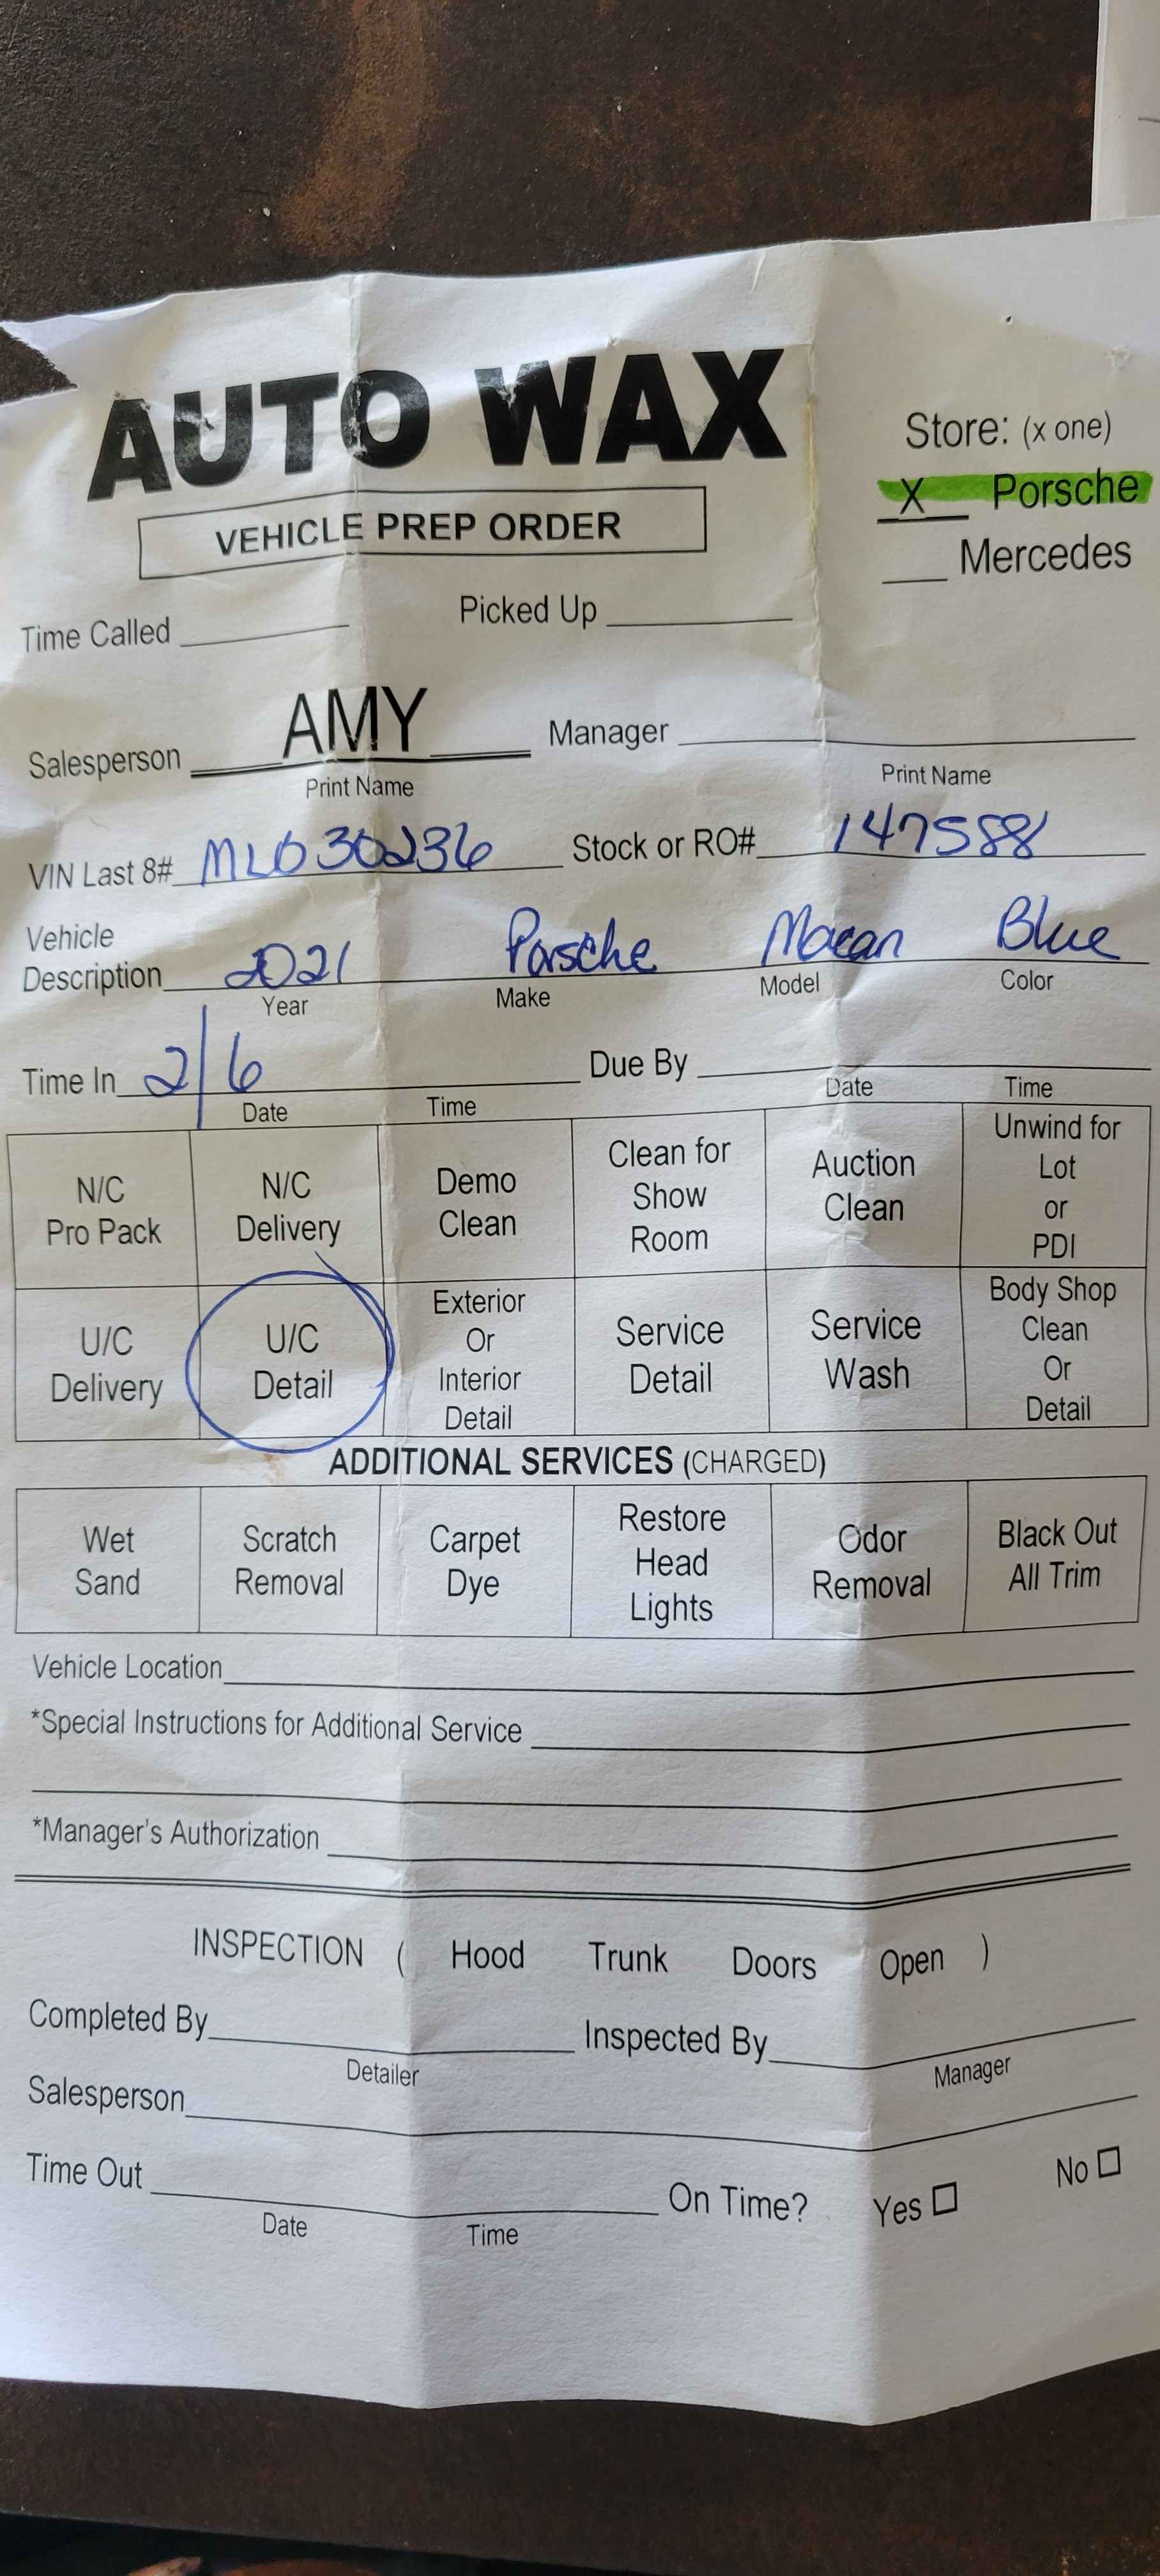 AUTO WAX
VEHICLE PREP ORDER
Store: (x one)
X Porsche
___ Mercedes
Time Called ________ Picked Up ________
Salesperson AMY Manager ________
Print Name Print Name
VIN Last 8# ML030236 Stock or RO# 147588
Vehicle
Description 2021 Porsche Macan Blue
Year Make Model Color
Time In 2/6 Due By ________
Date Time Date Time
N/C Pro Pack
N/C Delivery
Demo Clean
Clean for Show Room
Auction Clean
Unwind for Lot or PDI
U/C Delivery
U/C Detail
Exterior Or Interior Detail
Service Detail
Service Wash
Body Shop Clean Or Detail
ADDITIONAL SERVICES (CHARGED)
Wet Sand
Scratch Removal
Carpet Dye
Restore Head Lights
Odor Removal
Black Out All Trim
Vehicle Location ________
*Special Instructions for Additional Service ________
*Manager's Authorization ________
INSPECTION ( Hood Trunk Doors Open )
Completed By ________ Inspected By ________
Detailer Manager
Salesperson ________
Time Out ________ On Time? Yes ☐ No ☐
Date Time